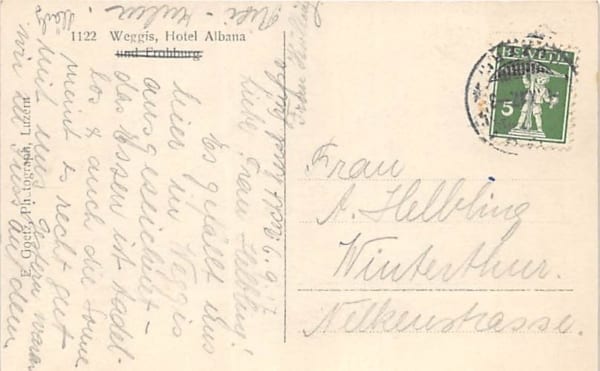 1122 Weggis, Hotel Albana
und Frohburg.
E. Goetz, Photograph, Luzern
HELVETIA
5
Frau
A. Helbling
Winterthur.
Nelkenstrasse.
Liebe Frau Helbling!
Es gefällt uns
hier in Weggis
ausgezeichnet –
das Essen ist tadel-
los & auch die Sonne
meint es recht gut
mit uns. Gestern waren
wir zu Fuss auf dem